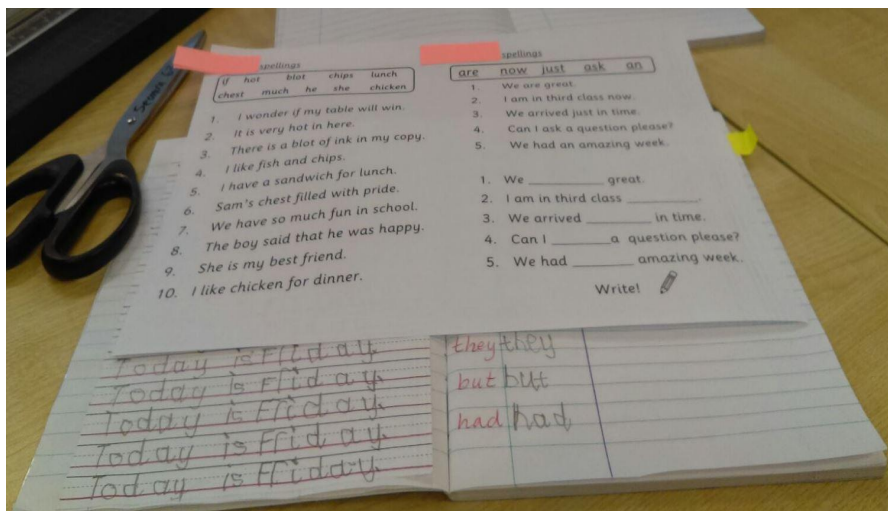 spellings
if hot blot chips lunch
chest much he she chicken
1. I wonder if my table will win.
2. It is very hot in here.
3. There is a blot of ink in my copy.
4. I like fish and chips.
5. I have a sandwich for lunch.
6. Sam's chest filled with pride.
7. We have so much fun in school.
8. The boy said that he was happy.
9. She is my best friend.
10. I like chicken for dinner.
spellings
are now just ask an
1. We are great.
2. I am in third class now.
3. We arrived just in time.
4. Can I ask a question please?
5. We had an amazing week.
1. We ________ great.
2. I am in third class ________.
3. We arrived ________ in time.
4. Can I ________a question please?
5. We had ________ amazing week.
Write!
Today is Friday.
Today is Friday.
Today is Friday.
Today is Friday.
Today is Friday.
they they
but but
had had